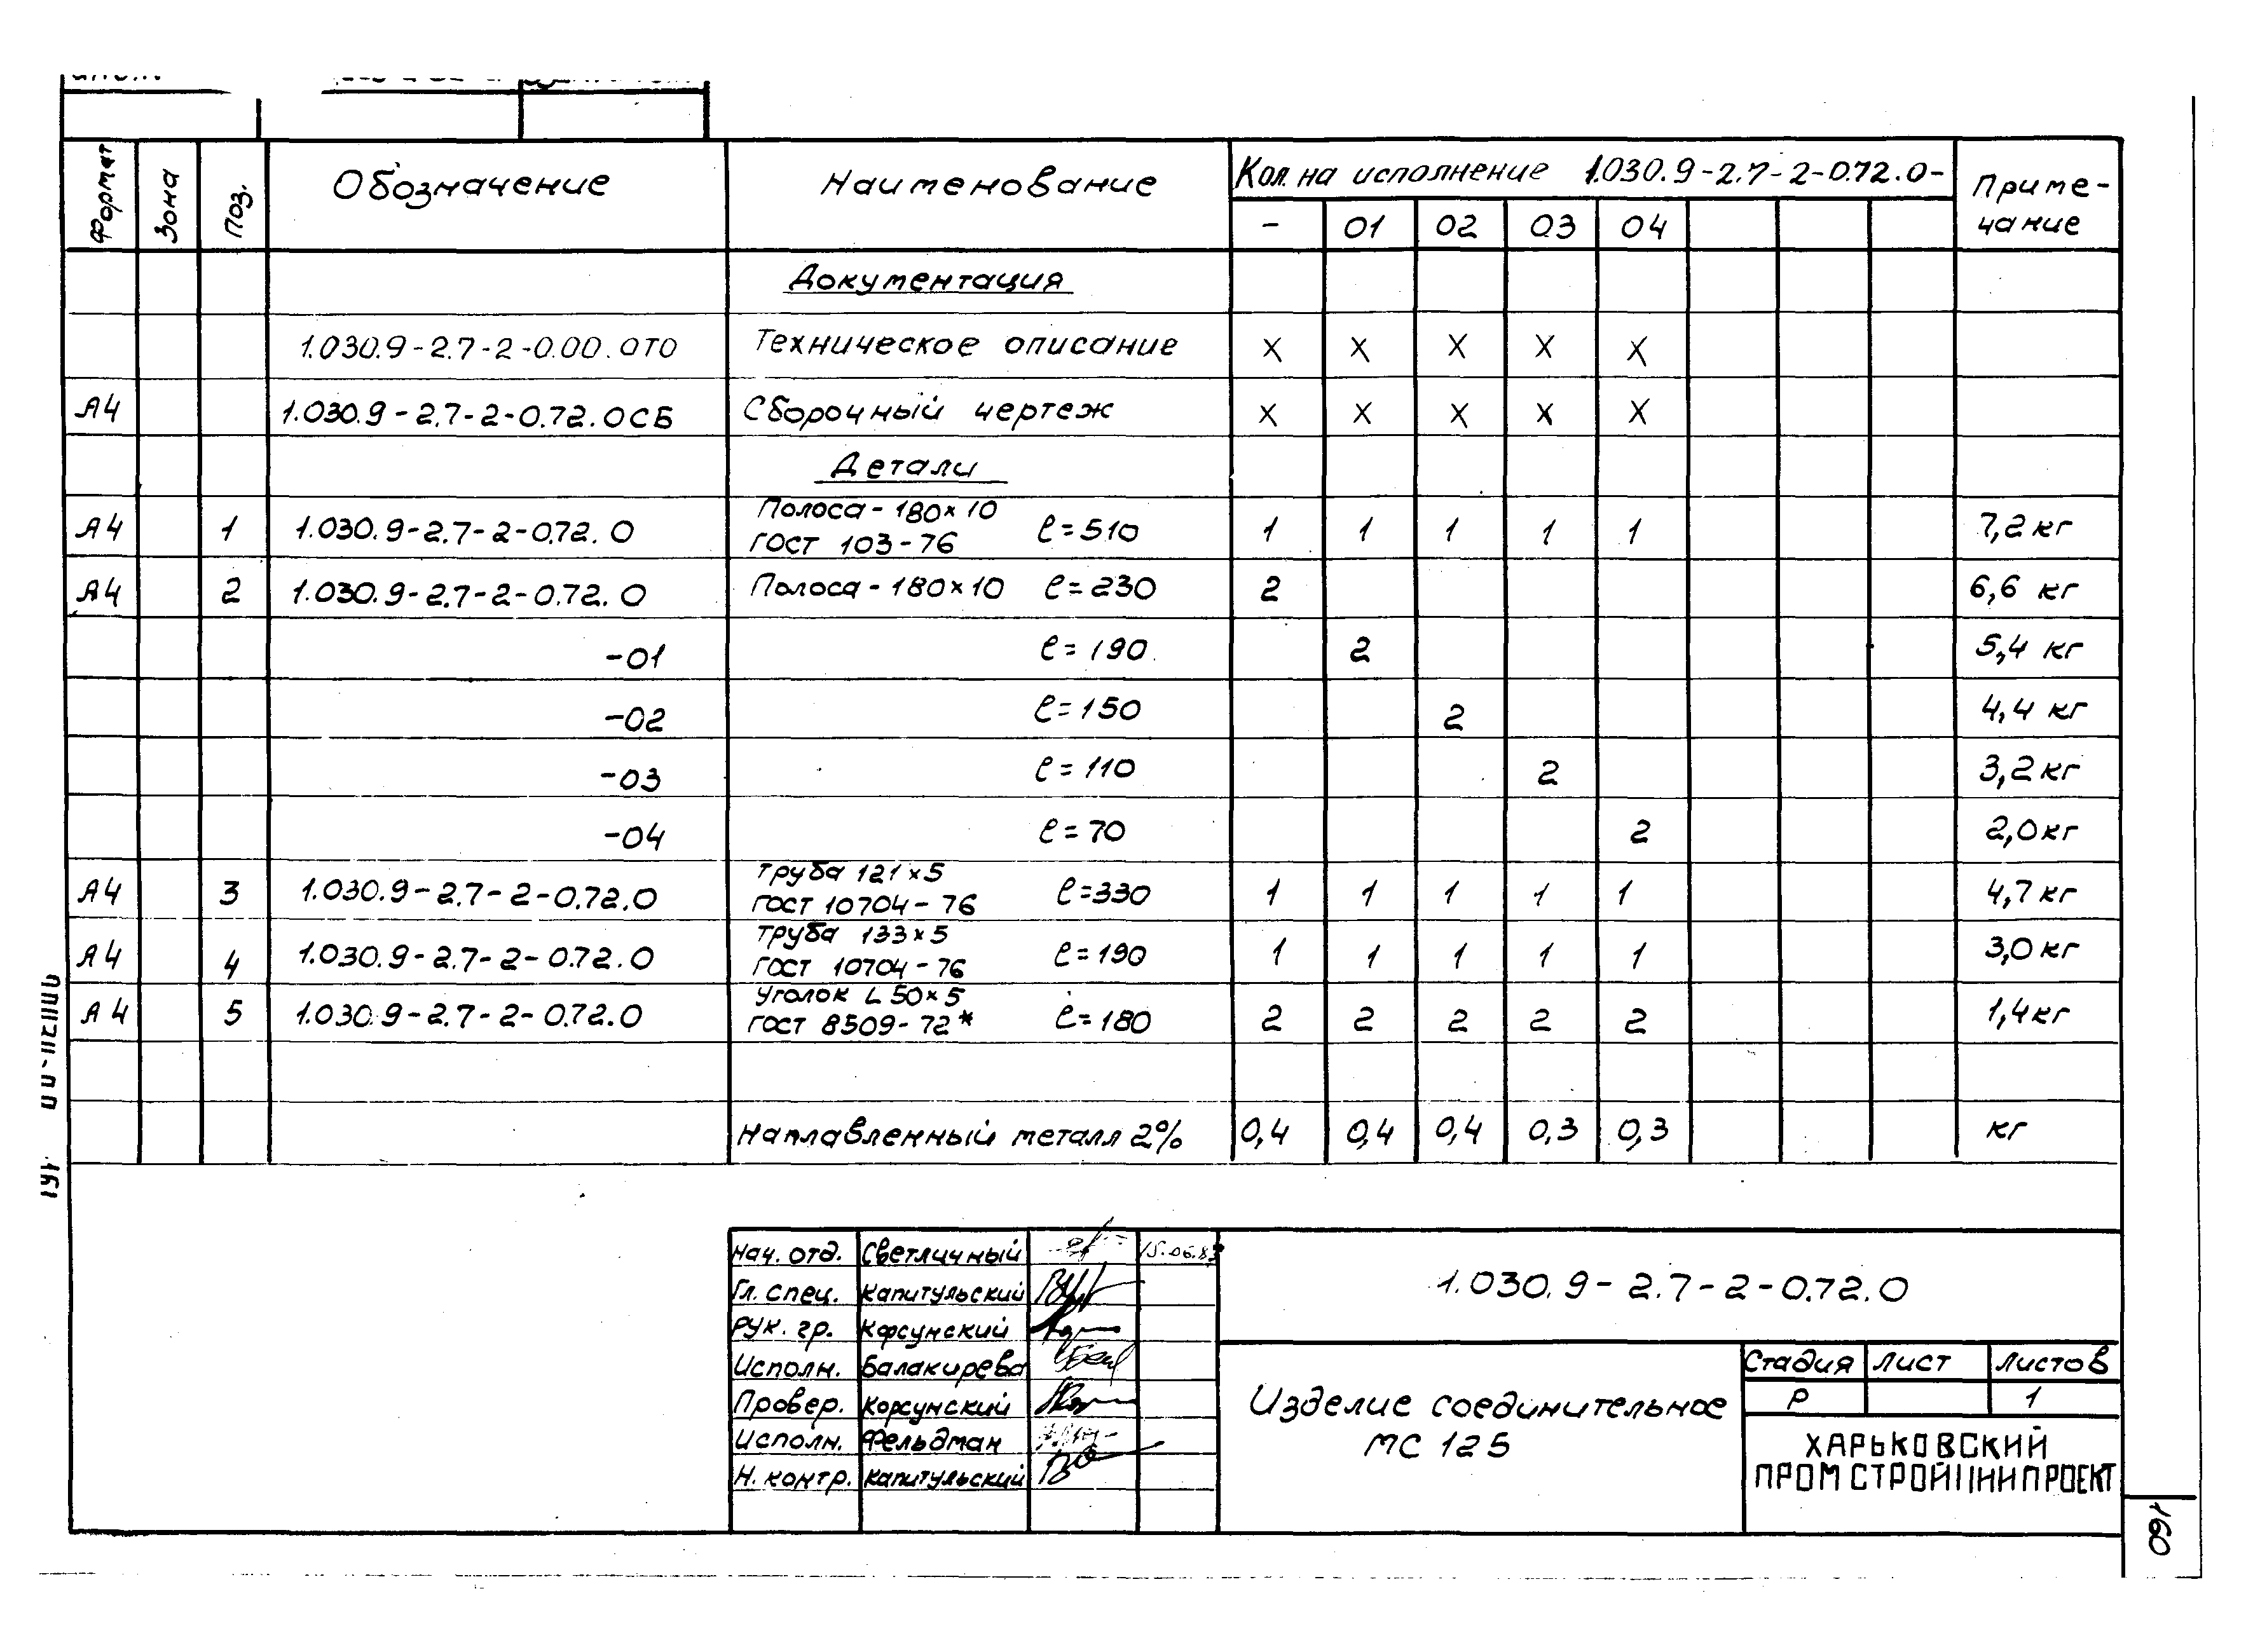 Формат Зона Поз. Обозначение Наименование Кол. на исполнение 1.030.9-2.7-2-0.72.0- Приме-
чание
- 01 02 03 04
Документация
1.030.9-2.7-2-0.00.0ТО Техническое описание X X X X X
А4 1.030.9-2.7-2-0.72.0СБ Сборочный чертеж X X X X X
Детали
А4 1 1.030.9-2.7-2-0.72.0 Полоса-180×10 ℓ=510 1 1 1 1 1 7,2 кг
ГОСТ 103-76
А4 2 1.030.9-2.7-2-0.72.0 Полоса-180×10 ℓ=230 2 6,6 кг
-01 ℓ=190 2 5,4 кг
-02 ℓ=150 2 4,4 кг
-03 ℓ=110 2 3,2 кг
-04 ℓ=70 2 2,0 кг
А4 3 1.030.9-2.7-2-0.72.0 Труба 121×5 ℓ=330 1 1 1 1 1 4,7 кг
ГОСТ 10704-76
А4 4 1.030.9-2.7-2-0.72.0 Труба 133×5 ℓ=190 1 1 1 1 1 3,0 кг
ГОСТ 10704-76
А4 5 1.030.9-2.7-2-0.72.0 Уголок L 50×5 ℓ=180 2 2 2 2 2 1,4 кг
ГОСТ 8509-72*
Наплавленный металл 2% 0,4 0,4 0,4 0,3 0,3 кг
Нач. отд. Светличный
Гл. спец. Капитульский
Рук. гр. Корсунский
Исполн. Балакирева
Провер. Корсунский
Исполн. Фельдман
Н. контр. Капитульский
1.030.9-2.7-2-0.72.0
Изделие соединительное
МС 125
Стадия Лист Листов
Р 1
ХАРЬКОВСКИЙ
ПРОМСТРОЙНИИПРОЕКТ
160